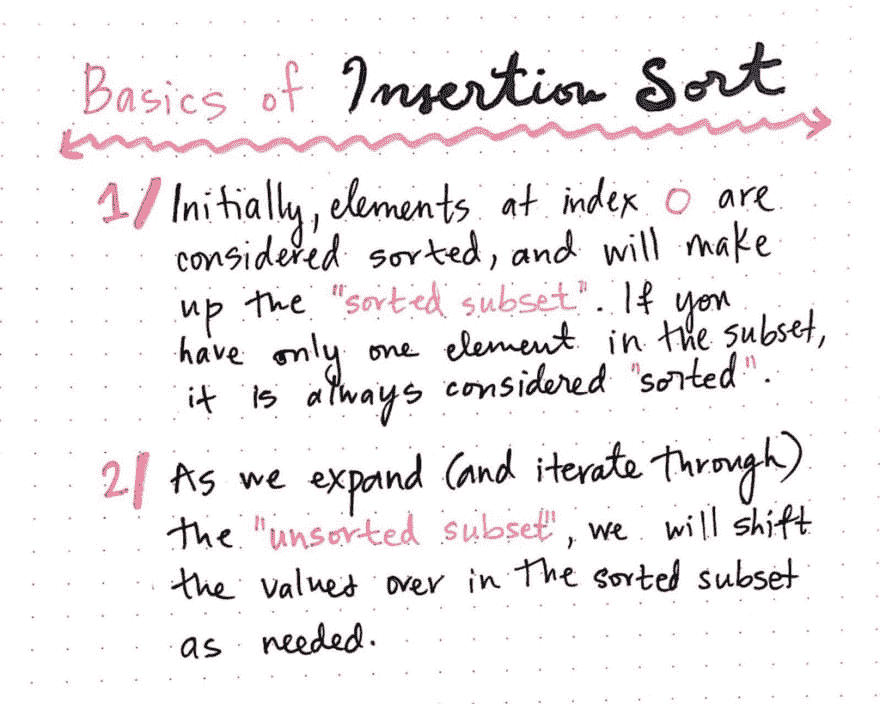 Basics of Insertion Sort
1/ Initially, elements at index 0 are
considered sorted, and will make
up the "sorted subset". If you
have only one element in the subset,
it is always considered "sorted".
2/ As we expand (and iterate through)
the "unsorted subset", we will shift
the values over in the sorted subset
as needed.